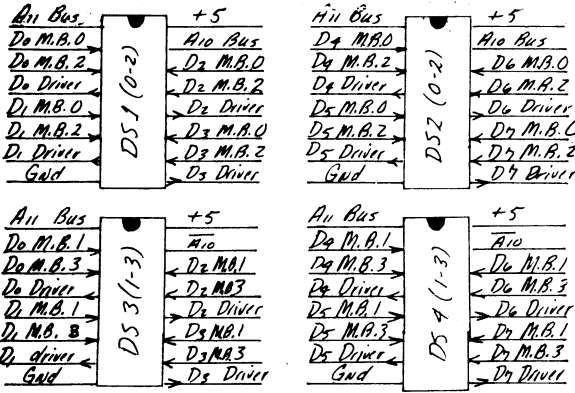 A11 Bus
D0 M.B.0
D0 M.B.2
D0 Driver
D1 M.B.0
D1 M.B.2
D1 Driver
Gnd
DS1 (0-2)
+5
A10 Bus
D2 M.B.0
D2 M.B.2
D2 Driver
D3 M.B.0
D3 M.B.2
D3 Driver
A11 Bus
D4 M.B.0
D4 M.B.2
D4 Driver
D5 M.B.0
D5 M.B.2
D5 Driver
Gnd
DS2 (0-2)
+5
A10 Bus
D6 M.B.0
D6 M.B.2
D6 Driver
D7 M.B.0
D7 M.B.2
D7 Driver
A11 Bus
D0 M.B.1
D0 M.B.3
D0 Driver
D1 M.B.1
D1 M.B. 3
D1 driver
Gnd
DS3 (1-3)
+5
A̅1̅0̅
D2 M.B.1
D2 M.B.3
D2 Driver
D3 M.B.1
D3 M.B.3
D3 Driver
A11 Bus
D4 M.B.1
D4 M.B.3
D4 Driver
D5 M.B.1
D5 M.B.3
D5 Driver
Gnd
DS4 (1-3)
+5
A̅1̅0̅
D6 M.B.1
D6 M.B.3
D6 Driver
D7 M.B.1
D7 M.B.3
D7 Driver